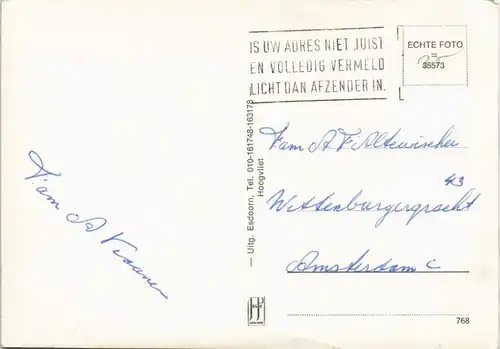 IS UW ADRES NIET JUIST
EN VOLLEDIG VERMELD
LICHT DAN AFZENDER IN.
ECHTE FOTO
35573
Fam A
Fam A F Altewischer
43
Wittenburgergracht
Amsterdam C
— Uitg. Esdoorn, Tel. 010-161748-163178
Hoogvliet
768